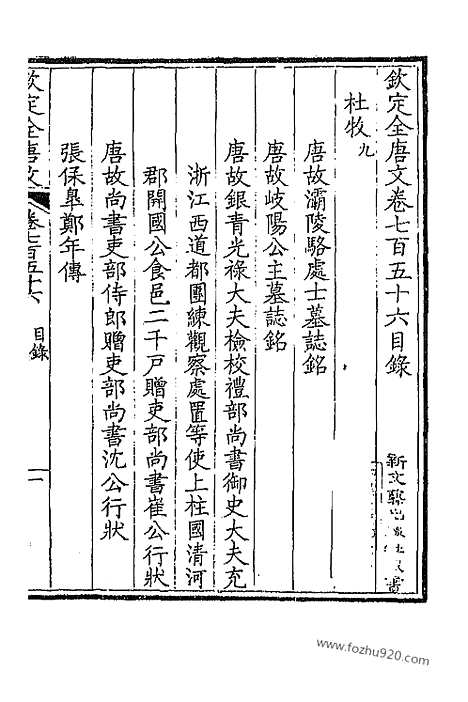 欽定全唐文卷七百五十六目錄
杜牧九
唐故灞陵駱處士墓誌銘
唐故岐陽公主墓誌銘
唐故銀青光祿大夫檢校禮部尚書御史大夫充
浙江西道都團練觀察處置等使上柱國清河
郡開國公食邑二千戶贈吏部尚書崔公行狀
唐故尚書吏部侍郎贈吏部尚書沈公行狀
張保皋鄭年傳
欽定全唐文 卷七百五十六 目錄 一
www.fozhu920.com